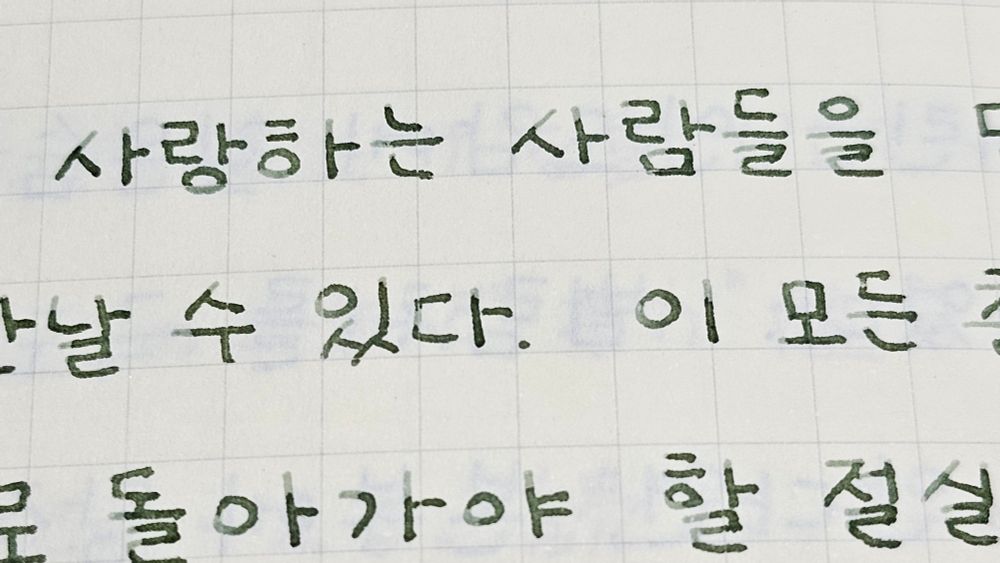 사랑하는 사람들을
날 수 있다. 이 모든
돌아가야 할 절실